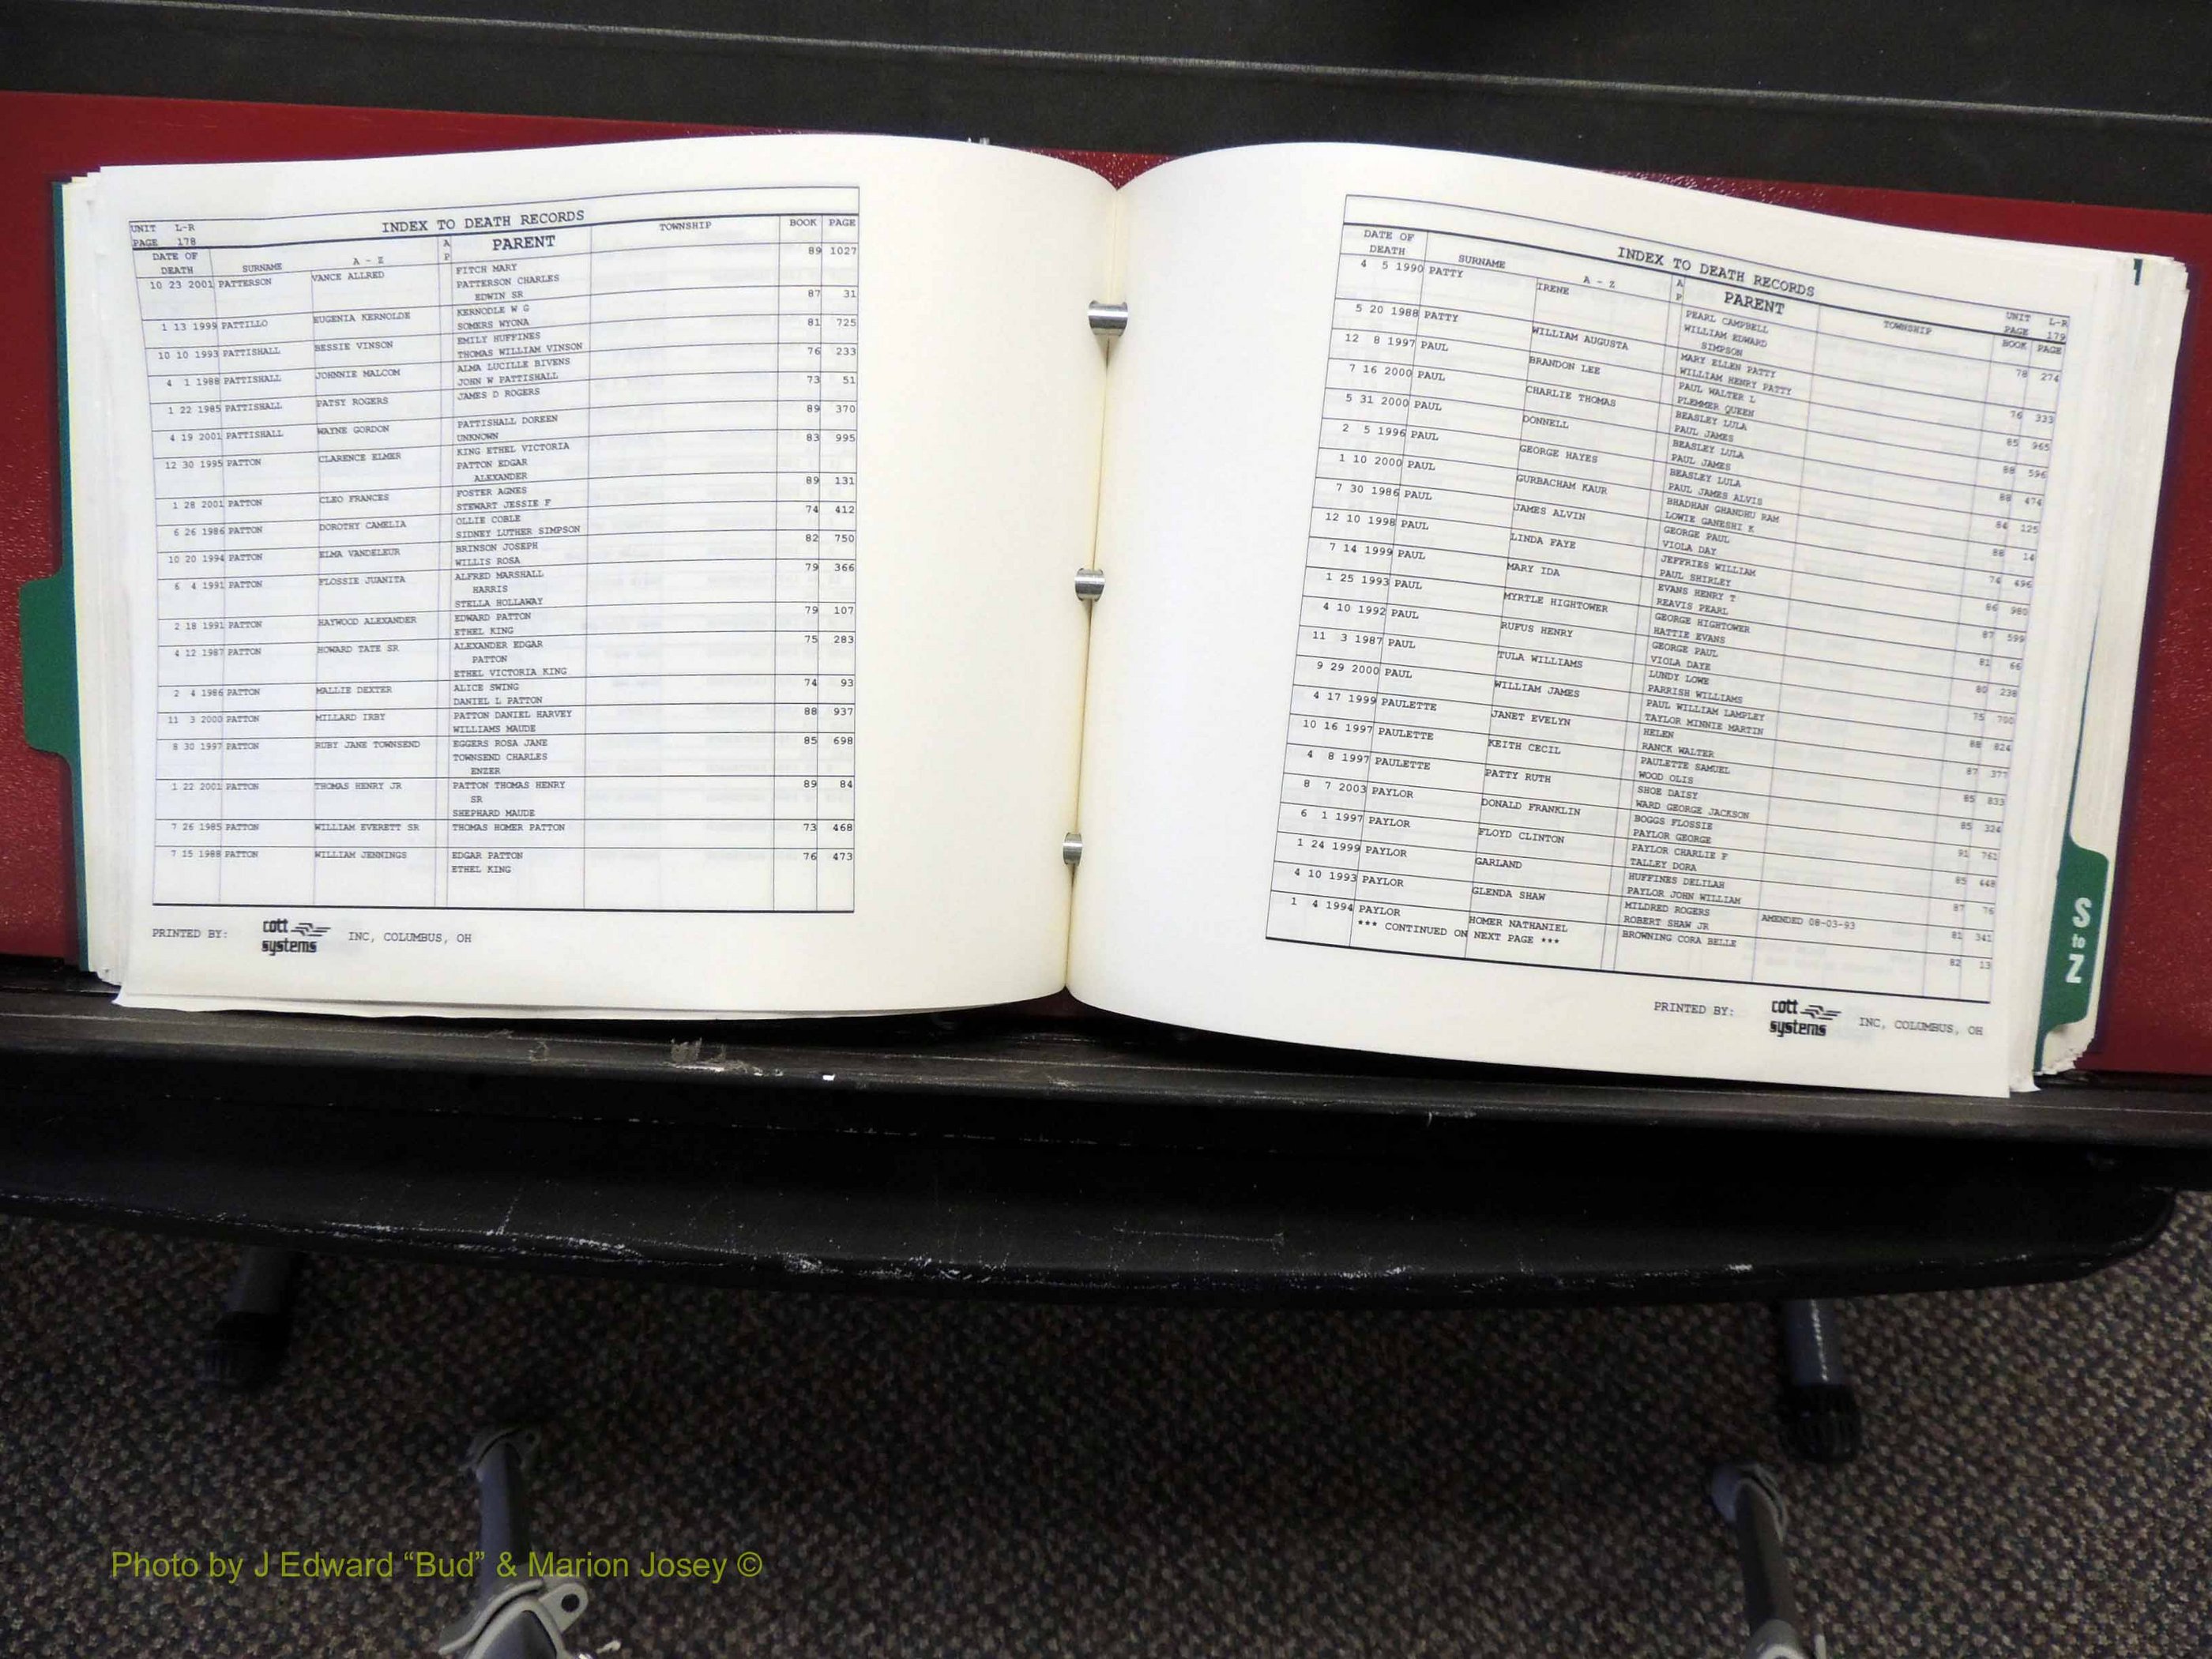 INDEX TO DEATH RECORDS
UNIT L-R
PAGE 178
DATE OF DEATH SURNAME A - Z AP PARENT TOWNSHIP BOOK PAGE
10 23 2001 PATTERSON VANCE ALLRED FITCH MARY 89 1027
PATTERSON CHARLES
EDWIN SR
1 13 1999 PATTILLO EUGENIA KERNOLDE KERNODLE W G 87 31
SOMERS WYONA
10 10 1993 PATTISHALL BESSIE VINSON EMILY HUFFINES 81 725
THOMAS WILLIAM VINSON
4 1 1988 PATTISHALL JOHNNIE MALCOM ALMA LUCILLE BIVENS 76 233
JOHN W PATTISHALL
1 22 1985 PATTISHALL PATSY ROGERS JAMES D ROGERS 73 51
4 19 2001 PATTISHALL WAYNE GORDON PATTISHALL DOREEN 89 370
UNKNOWN
12 30 1995 PATTON CLARENCE ELMER KING ETHEL VICTORIA 83 995
PATTON EDGAR
ALEXANDER
1 28 2001 PATTON CLEO FRANCES FOSTER AGNES 89 131
STEWART JESSIE F
6 26 1986 PATTON DOROTHY CAMELIA OLLIE COBLE 74 412
SIDNEY LUTHER SIMPSON
10 20 1994 PATTON ELMA VANDELEUR BRINSON JOSEPH 82 750
WILLIS ROSA
6 4 1991 PATTON FLOSSIE JUANITA ALFRED MARSHALL 79 366
HARRIS
STELLA HOLLAWAY
2 18 1991 PATTON HAYWOOD ALEXANDER EDWARD PATTON 79 107
ETHEL KING
4 12 1987 PATTON HOWARD TATE SR ALEXANDER EDGAR 75 283
PATTON
ETHEL VICTORIA KING
2 4 1986 PATTON MALLIE DEXTER ALICE SWING 74 93
DANIEL L PATTON
11 3 2000 PATTON MILLARD IRBY PATTON DANIEL HARVEY 88 937
WILLIAMS MAUDE
8 30 1997 PATTON RUBY JANE TOWNSEND EGGERS ROSA JANE 85 698
TOWNSEND CHARLES
ENZER
1 22 2001 PATTON THOMAS HENRY JR PATTON THOMAS HENRY 89 84
SR
SHEPHARD MAUDE
7 26 1985 PATTON WILLIAM EVERETT SR THOMAS HOMER PATTON 73 468
7 15 1988 PATTON WILLIAM JENNINGS EDGAR PATTON 76 473
ETHEL KING
PRINTED BY: cott systems INC, COLUMBUS, OH
INDEX TO DEATH RECORDS
UNIT L-R
PAGE 179
DATE OF DEATH SURNAME A - Z AP PARENT TOWNSHIP BOOK PAGE
4 5 1990 PATTY IRENE PEARL CAMPBELL 78 274
WILLIAM EDWARD
SIMPSON
5 20 1988 PATTY WILLIAM AUGUSTA MARY ELLEN PATTY 76 333
WILLIAM HENRY PATTY
12 8 1997 PAUL BRANDON LEE PAUL WALTER L 85 965
PLEMMER QUEEN
7 16 2000 PAUL CHARLIE THOMAS BEASLEY LULA 88 596
PAUL JAMES
5 31 2000 PAUL DONNELL BEASLEY LULA 88 474
PAUL JAMES
2 5 1996 PAUL GEORGE HAYES BEASLEY LULA 84 125
PAUL JAMES ALVIS
1 10 2000 PAUL GURBACHAM KAUR BRADHAN GHANDHU RAM 88 14
LOWIE GANESHI K
7 30 1986 PAUL JAMES ALVIN GEORGE PAUL 74 496
VIOLA DAY
12 10 1998 PAUL LINDA FAYE JEFFRIES WILLIAM 86 980
PAUL SHIRLEY
7 14 1999 PAUL MARY IDA EVANS HENRY T 87 599
REAVIS PEARL
1 25 1993 PAUL MYRTLE HIGHTOWER GEORGE HIGHTOWER 81 66
HATTIE EVANS
4 10 1992 PAUL RUFUS HENRY GEORGE PAUL 80 238
VIOLA DAYE
11 3 1987 PAUL TULA WILLIAMS LUNDY LOWE 75 700
PARRISH WILLIAMS
9 29 2000 PAUL WILLIAM JAMES PAUL WILLIAM LAMPLEY 88 824
TAYLOR MINNIE MARTIN
4 17 1999 PAULETTE JANET EVELYN HELEN 87 377
RANCK WALTER
10 16 1997 PAULETTE KEITH CECIL PAULETTE SAMUEL 85 833
WOOD OLIS
4 8 1997 PAULETTE PATTY RUTH SHOE DAISY 85 324
WARD GEORGE JACKSON
8 7 2003 PAYLOR DONALD FRANKLIN BOGGS FLOSSIE 91 761
PAYLOR GEORGE
6 1 1997 PAYLOR FLOYD CLINTON PAYLOR CHARLIE F 85 448
TALLEY DORA
1 24 1999 PAYLOR GARLAND HUFFINES DELILAH 87 76
PAYLOR JOHN WILLIAM
4 10 1993 PAYLOR GLENDA SHAW MILDRED ROGERS AMENDED 08-03-93 81 341
ROBERT SHAW JR
1 4 1994 PAYLOR HOMER NATHANIEL BROWNING CORA BELLE 82 13
*** CONTINUED ON NEXT PAGE ***
PRINTED BY: cott systems INC, COLUMBUS, OH
S to Z
Photo by J Edward “Bud” & Marion Josey ©